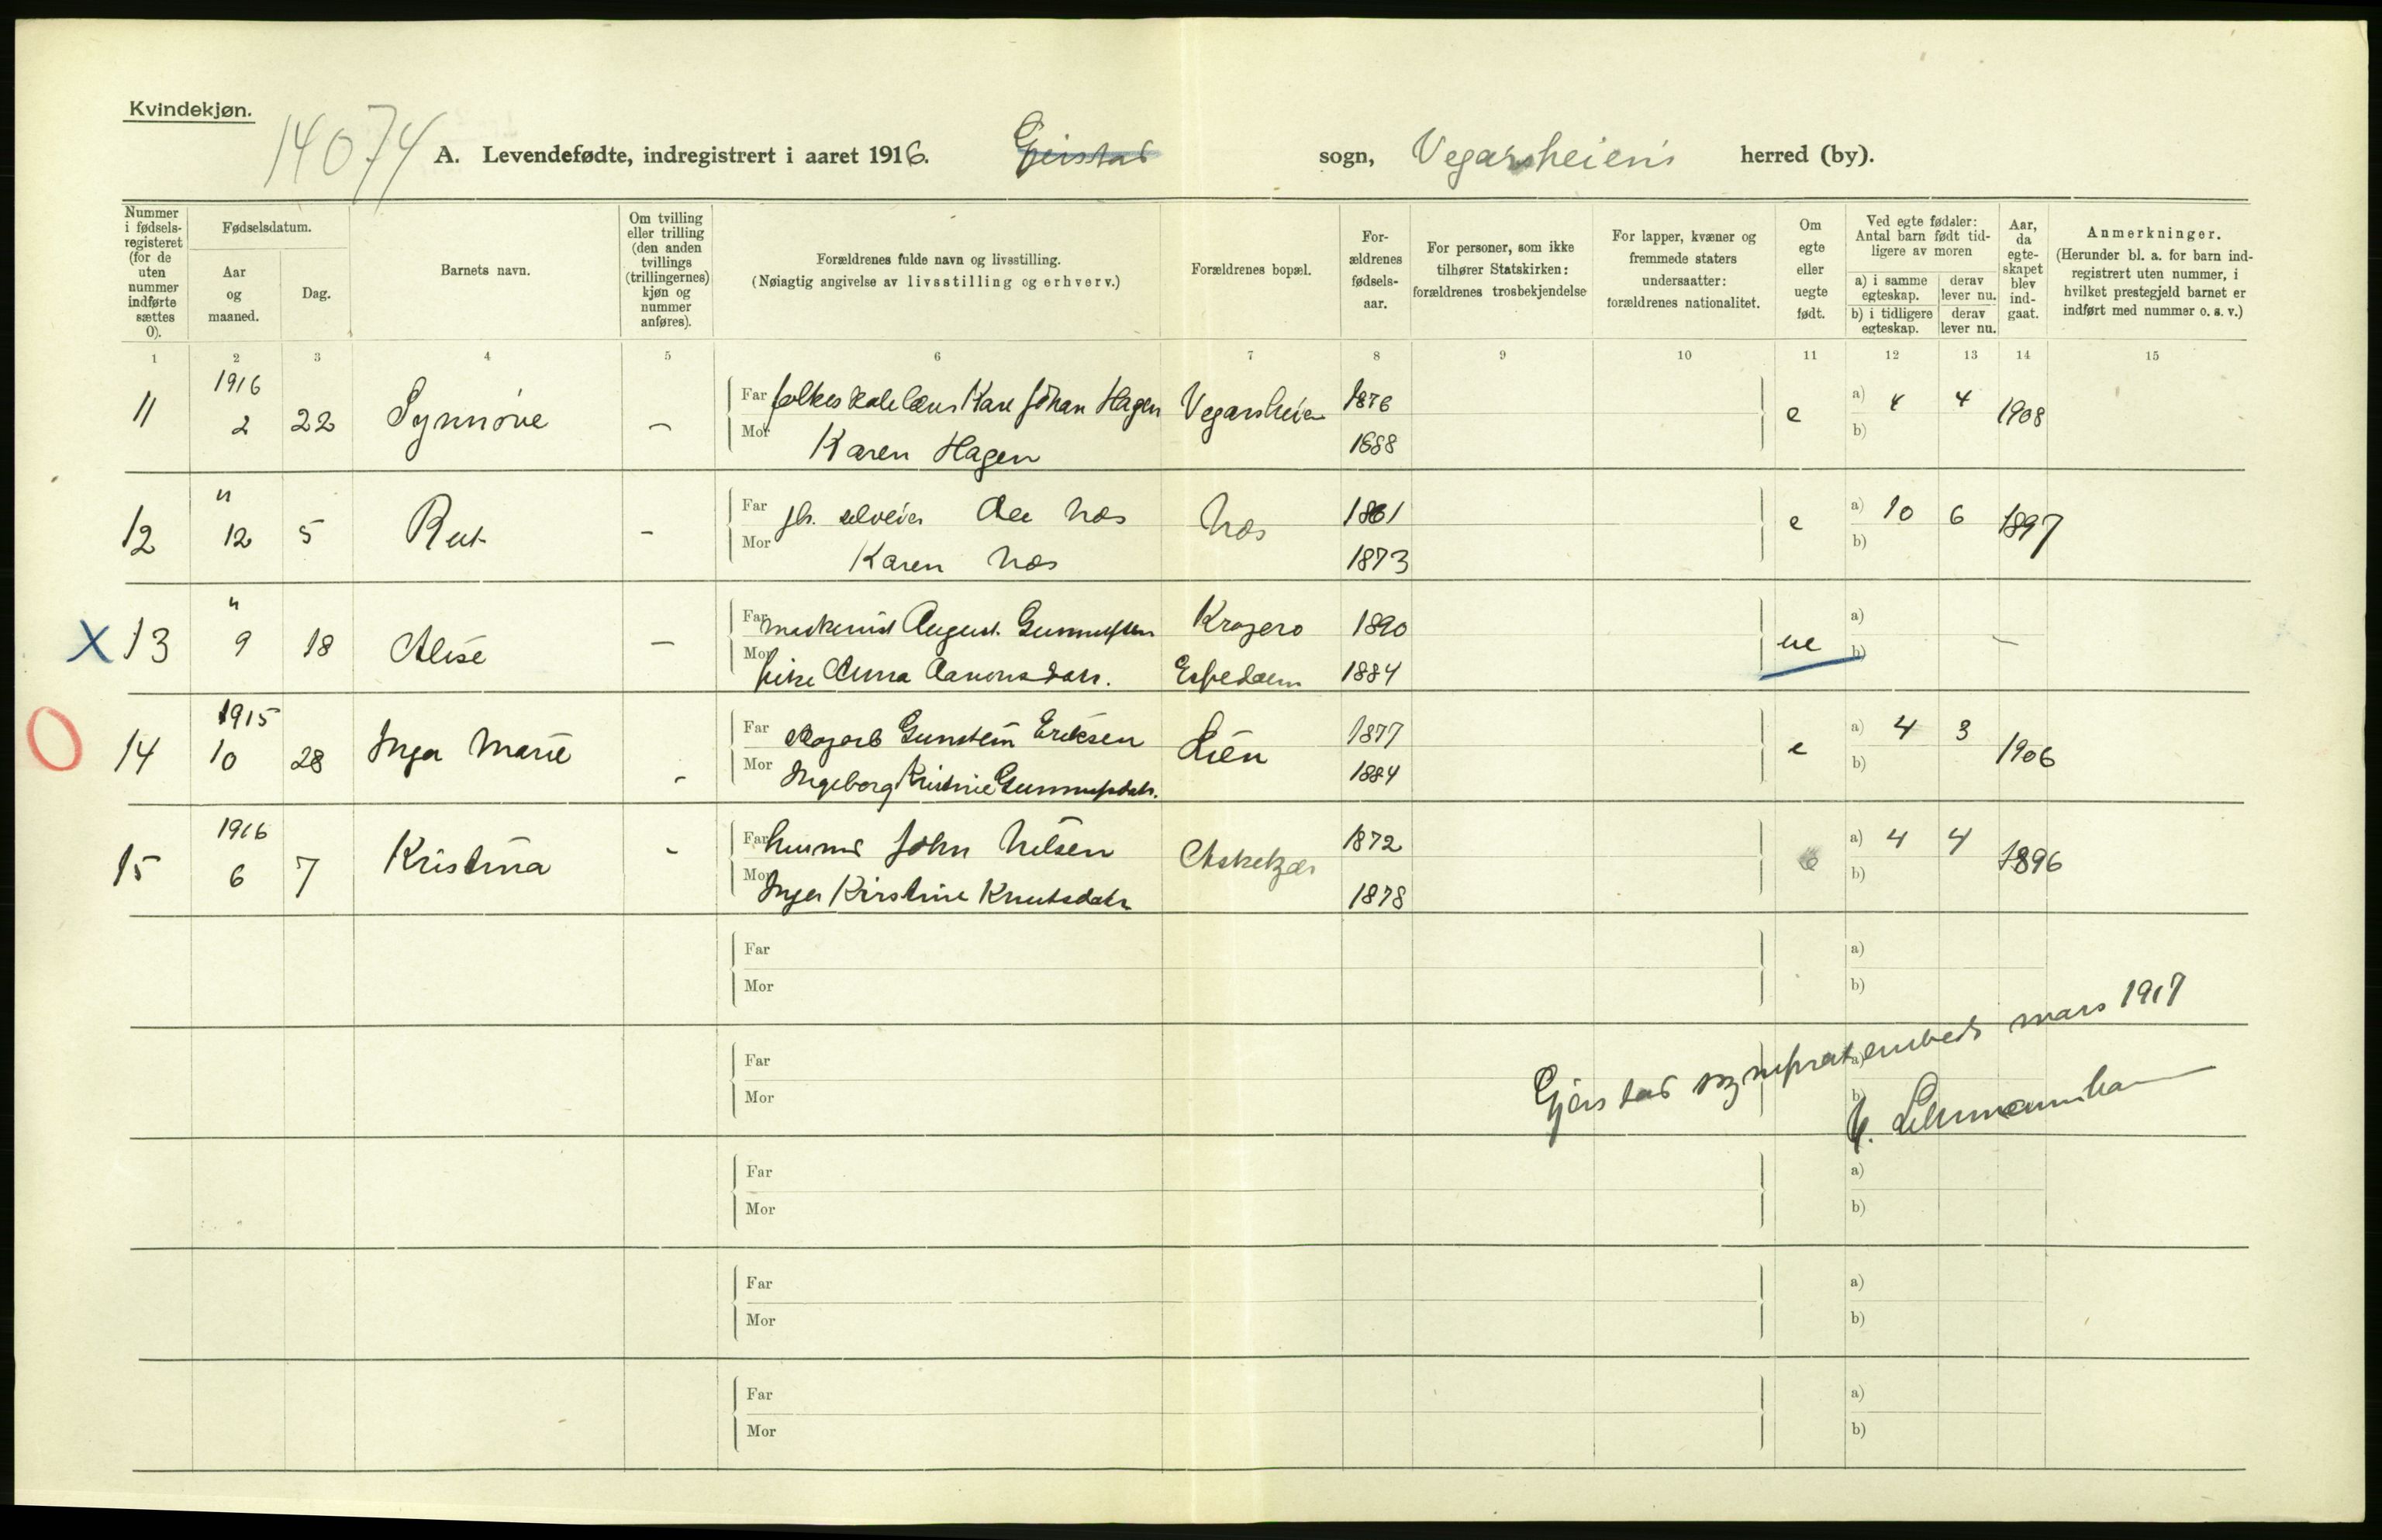 Kvindekjøn.
14074
A. Levendefødte, indregistrert i aaret 1916. Gjerstad sogn, Vegarsheiens herred (by).
Nummer i fødsels-registeret (for de uten nummer indførte sættes 0).
Fødselsdatum.
Aar og maaned.
Dag.
Barnets navn.
Om tvilling eller trilling (den anden tvillings (trillingernes) kjøn og nummer anføres).
Forældrenes fulde navn og livsstilling.
(Nøiagtig angivelse av livsstilling og erhverv.)
Forældrenes bopæl.
For-ældrenes fødsels-aar.
For personer, som ikke tilhører Statskirken: forældrenes trosbekjendelse
For lapper, kvæner og fremmede staters undersaatter: forældrenes nationalitet.
Om egte eller uegte født.
Ved egte fødsler: Antal barn født tid-ligere av moren
a) i samme egteskap.
derav lever nu.
b) i tidligere egteskap.
derav lever nu.
Aar, da egte-skapet blev ind-gaat.
Anmerkninger.
(Herunder bl. a. for barn ind-registrert uten nummer, i hvilket prestegjeld barnet er indført med nummer o. s. v.)
1 2 3 4 5 6 7 8 9 10 11 12 13 14 15
11 1916 2 22 Synnøve - Far Karl Johan Hagen Vegarsheien 1876 e a) 4 4 1908
Mor Karen Hagen 1888 b)
12 " 12 5 Rut - Far selveier Næs Næs 1861 e a) 10 6 1897
Mor Karen Næs 1873 b)
X 13 " 9 18 Alise - Far maskinist August Gunnufsen Kragerø 1890 ue a) -
Mor pike Anna Aanonsdatr. Espedalen 1884 b)
O 14 1915 10 28 Inga Marie - Far Gunstein Eriksen Lien 1877 e a) 4 3 1906
Mor Ingeborg Kristine Gunnufsdatr. 1884 b)
15 1916 6 7 Kristina - Far John Nilsen 1872 e a) 4 4 1896
Mor Inga Kirstine Knutsdatr 1878 b)
Far a)
Mor b)
Far a)
Mor b)
Gjerstad sogneprestembede mars 1917
Far a)
Mor b)
Far a)
Mor b)
Far a)
Mor b)